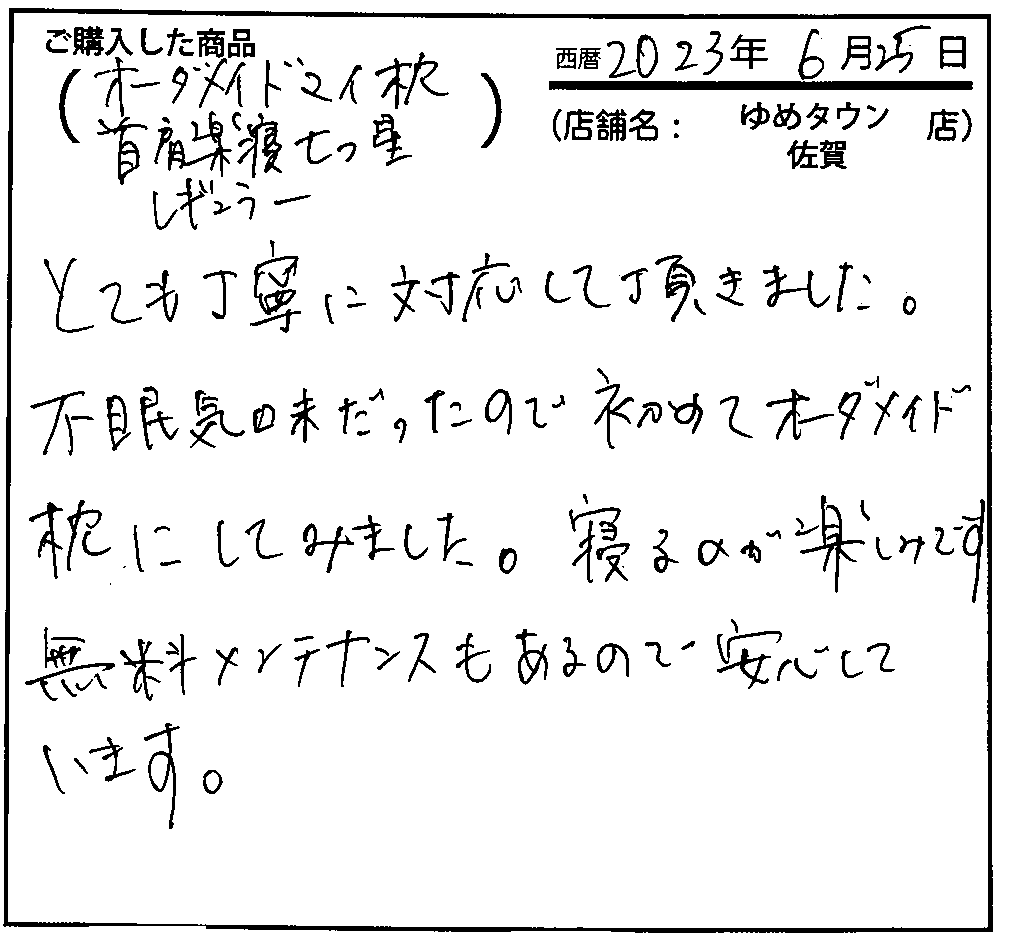 ご購入した商品
西暦2023年 6月25日
(オーダメイドマイ枕
首肩楽寝七つ星)
レギュラー
(店舗名： ゆめタウン 店)
佐賀
とても丁寧に対応して頂きました。
不眠気味だったので初めてオーダメイド
枕にしてみました。寝るのが楽しみです
無料メンテナンスもあるので安心して
います。